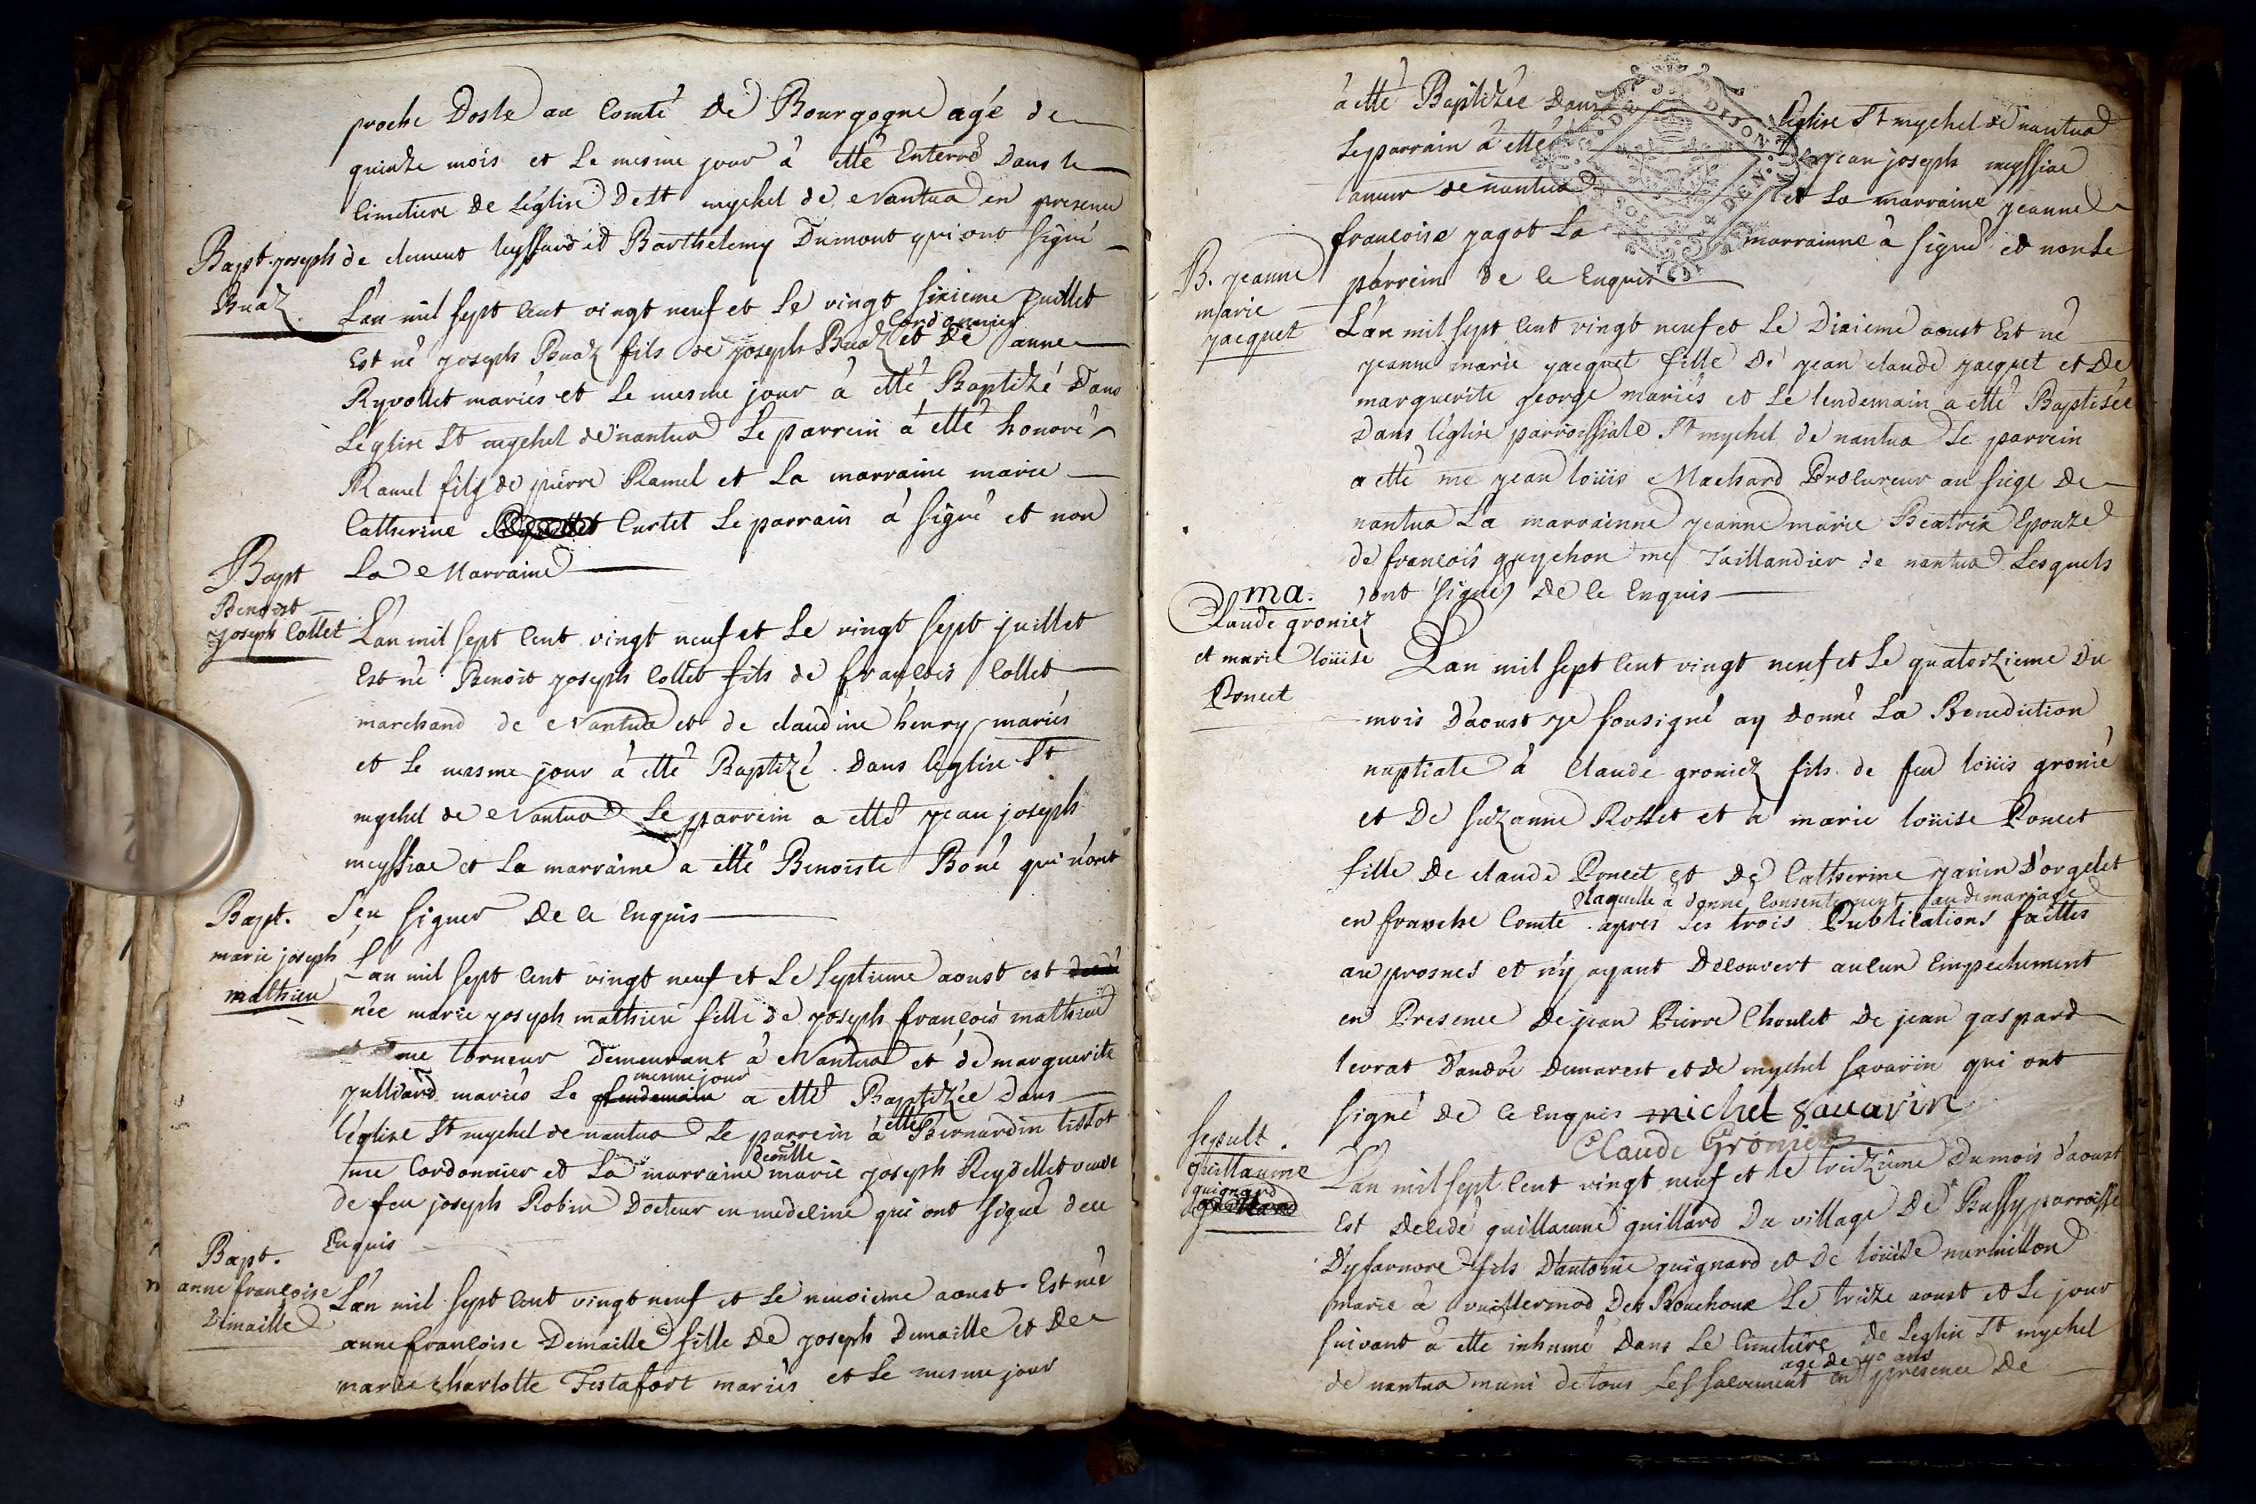 proche Dosle au Comté de Bourgogne agé de
quinze mois et Le mesme jour à etté Enterré Dans le
Cimetiere de L'église De St mychel de Nantua en presence
de clement leyssard et Barthelemy Dumont qui ont signé
Bapt. joseph
Buaz
L'an mil sept Cent vingt neuf et Le vingt sixieme juillet
Est né joseph Buaz fils de joseph Buaz Cordonnier et de anne
Ryvollet mariés et Le mesme jour à etté Baptizé Dans
L'église St mychel de nantua Le parrein à etté honoré
Ramel fils de pierre Ramel et La marraine marie
Catherine Curtet Le parrain à signé et non
La Marraine
Bapt
Benoist
joseph Collet
L'an mil sept Cent vingt neuf et Le vingt sept juillet
Est né Benoit joseph Collet fils de françois Collet
marchand de Nantua et de claudine henry mariés
et Le mesme jour à etté Baptizé Dans l'eglise St
mychel de Nantua Le parrein a etté jean joseph
meyssiae et La marraine a etté Benoiste Boné qui n'ont
Sçeu signer De Ce Enquis
Bapt.
marie joseph
mathieu
L'an mil sept Cent vingt neuf et Le septieme aoust est
née marie joseph mathieu fille de joseph françois mathieu
me torneur Demeurant à Nantua et de marguerite
julliard mariés Le mesme jour a etté Baptizée dans
l'église St mychel de nantua Le parrein à etté Bernardin tissot
me Cordonnier et La marraine marie joseph Reydellet veuve
de feu joseph Robin Docteur en medecine qui ont signé de ce
Enquis
Bapt.
anne françoise
Demaille
L'an mil sept Cent vingt neuf et Le neuvieme aoust Est née
anne françoise Demaille fille De joseph Demaille et De
marie charlotte Testafort mariés et Le mesme jour
à etté Baptizée Dans l'église St mychel de nantua
Le parrain à etté jean joseph meyssiae
taneur de nantua et La marraine jeanne
françoise jagot La marrainne à signé et non le
parrein de Ce Enquis
B. jeanne
marie
jacquet
L'an mil sept Cent vingt neuf et Le Dixieme aoust Est né
jeanne marie jacquet fille De jean claude jacquet et De
marguerite george mariés et Le lendemain a etté Baptisée
Dans l'église parroissiale St mychel de nantua Le parrein
a etté me jean loüis Machard Procureur au siege De
nantua La marrainne jeanne marie Béatrix Epouze
de françois guychon me Taillandier de nantua Lesquels
ont signés De Ce Enquis
ma.
Claude groniez
et marie loüise
Poncet
L'an mil sept Cent vingt neuf et Le quatorzieme Du
mois D'aoust je sousigné ay donné La Benediction
nuptiale à Claude groniez fils de feu loüis gronié
et De suzanne Rosset et à marie loüise Poncet
fille De claude Poncet et De Catherine janin D'orgelet
laquelle a donné Consentement au de mariage
en franche Comté apres Les trois Publications faittes
au prosnes et n'y ayant Découvert aucun Empechement
en Presence De jean Pierre Choulet De jean gaspard
levrat D'andré Demarest et de mychel savarin qui ont
signé De Ce Enquis michel Sauarin
Claude Gronier
sepult.
guillaume
guignard
L'an mil sept Cent vingt neuf et le treizieme Du mois d'aoust
Est Decedé guillaume guillard Du village De Bussy parroisse
D'ysarnore fils D'antoine guignard et de loüise mermillon
marié à vuillermod Des Bouchoux Le treize aoust et Le jour
suivant à etté inhumé Dans Le Cimetiere De l'eglise St mychel
de nantua muni de tous Les sacrement agé de 40 ans en presence De